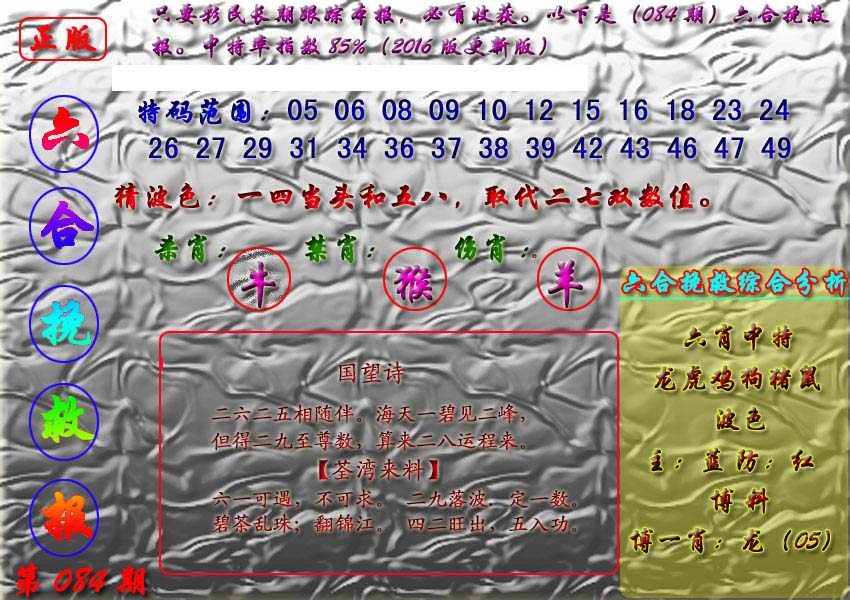 正版
只要彩民长期跟踪本报，必有收获。以下是（084期）六合挽救
报。中特率指数85%（2016版更新版）
六合挽救报
第084期
特码范围：05 06 08 09 10 12 15 16 18 23 24
26 27 29 31 34 36 37 38 39 42 43 46 47 49
猜波色：一四当头和五八，取代二七双数值。
杀肖：牛 禁肖：猴 伤肖：羊
国望诗
二六二五相随伴。海天一碧见二峰，
但得二九至尊数，算来二八运程来。
【荃湾来料】
六一可遇，不可求。 二九落波．定一数。
碧茶乱珠；翻锦江。 四二旺出，五入功。
六合挽救综合分析
六肖中特
龙虎鸡狗猪鼠
波色
主：蓝防：红
博料
博一肖：龙（05）